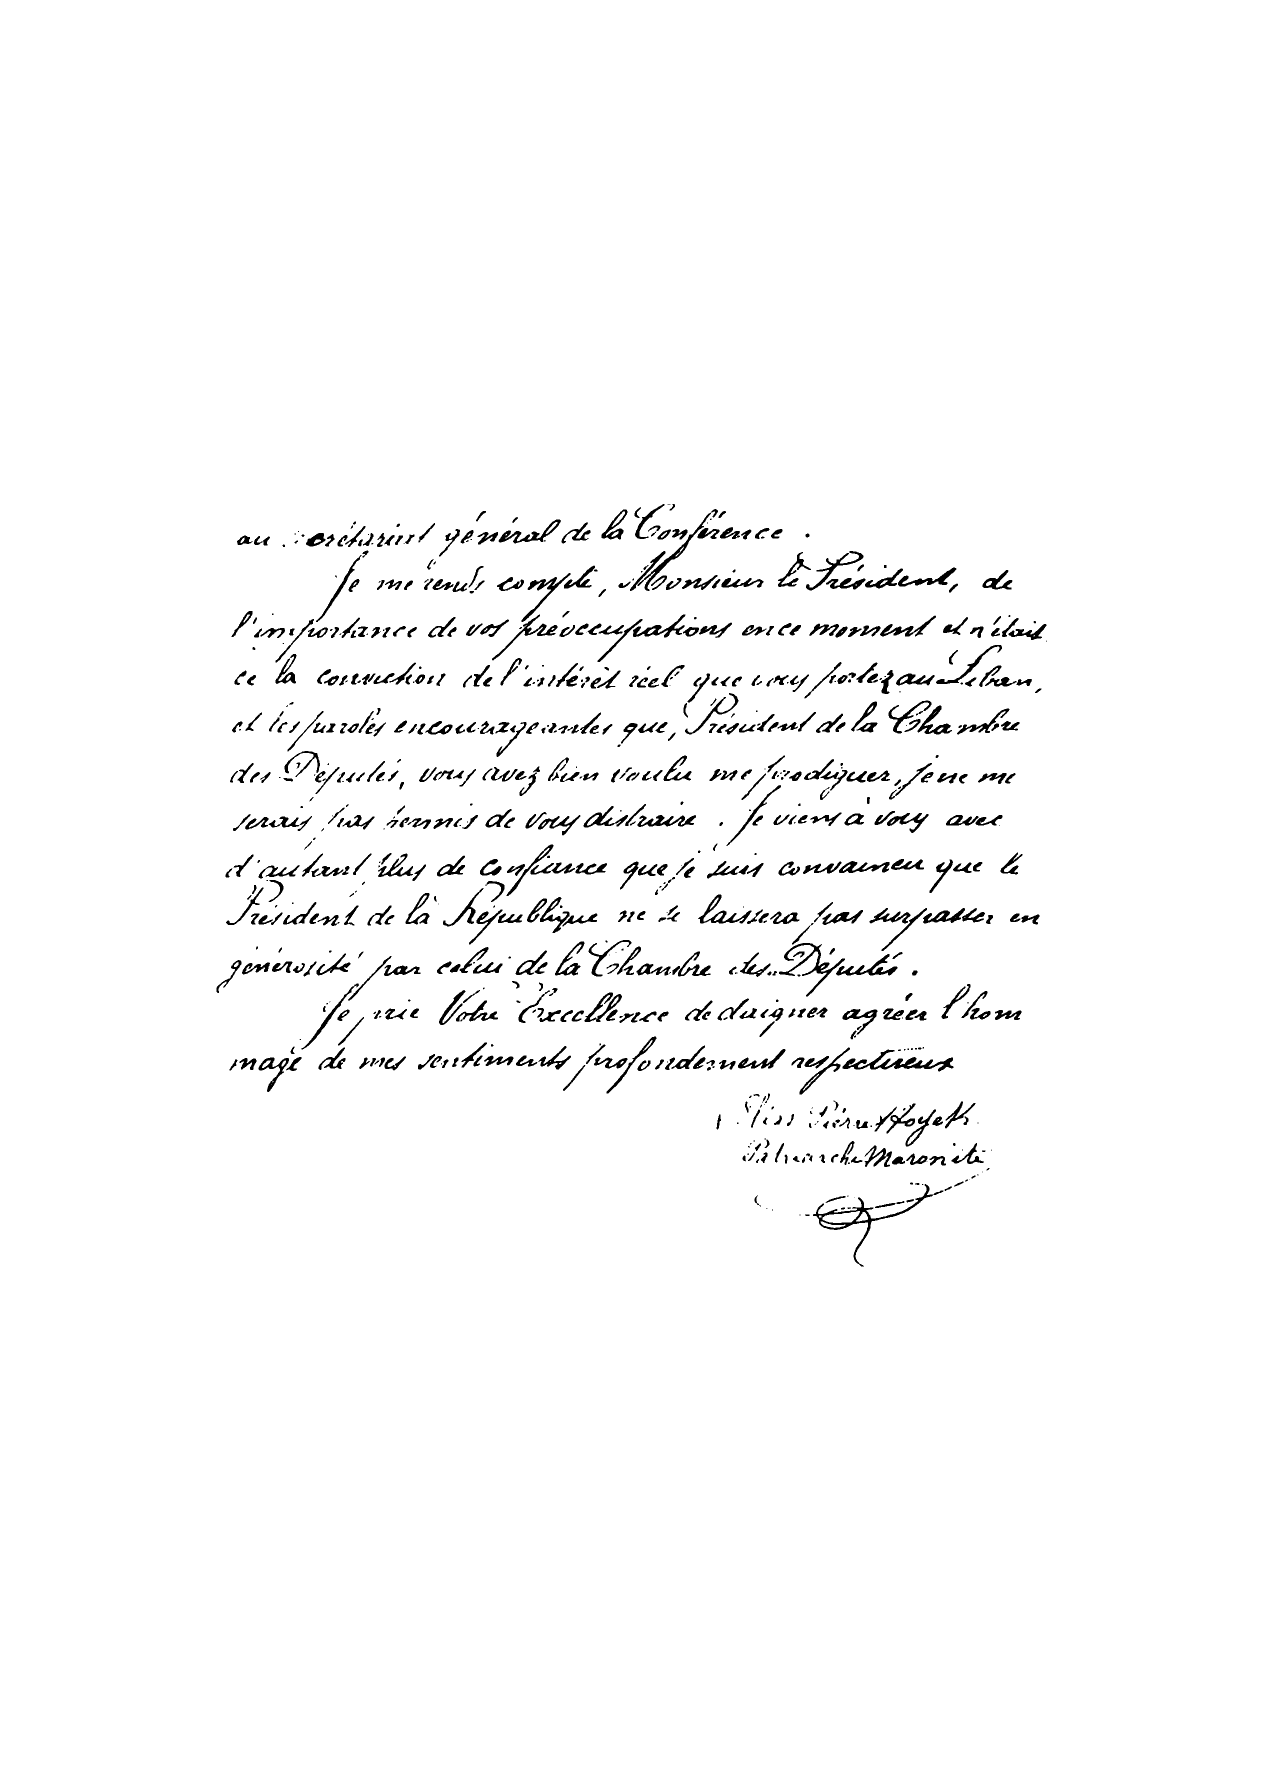 au secrétariat général de la Conférence.
Je me rends compte, Monsieur le Président, de
l'importance de vos préoccupations en ce moment et n'était
ce la conviction de l'intérêt réel que vous portez au Liban,
et les paroles encourageantes que, Président de la Chambre
des Députés, vous avez bien voulu me prodiguer, je ne me
serais pas permis de vous distraire. Je viens à vous avec
d'autant plus de confiance que je suis convaincu que le
Président de la République ne se laissera pas surpasser en
générosité par celui de la Chambre des Députés.
Je prie Votre Excellence de daigner agréer l'hom
mage de mes sentiments profondement respectueux
Elias Pierre Hoyek
Patriarche Maronite